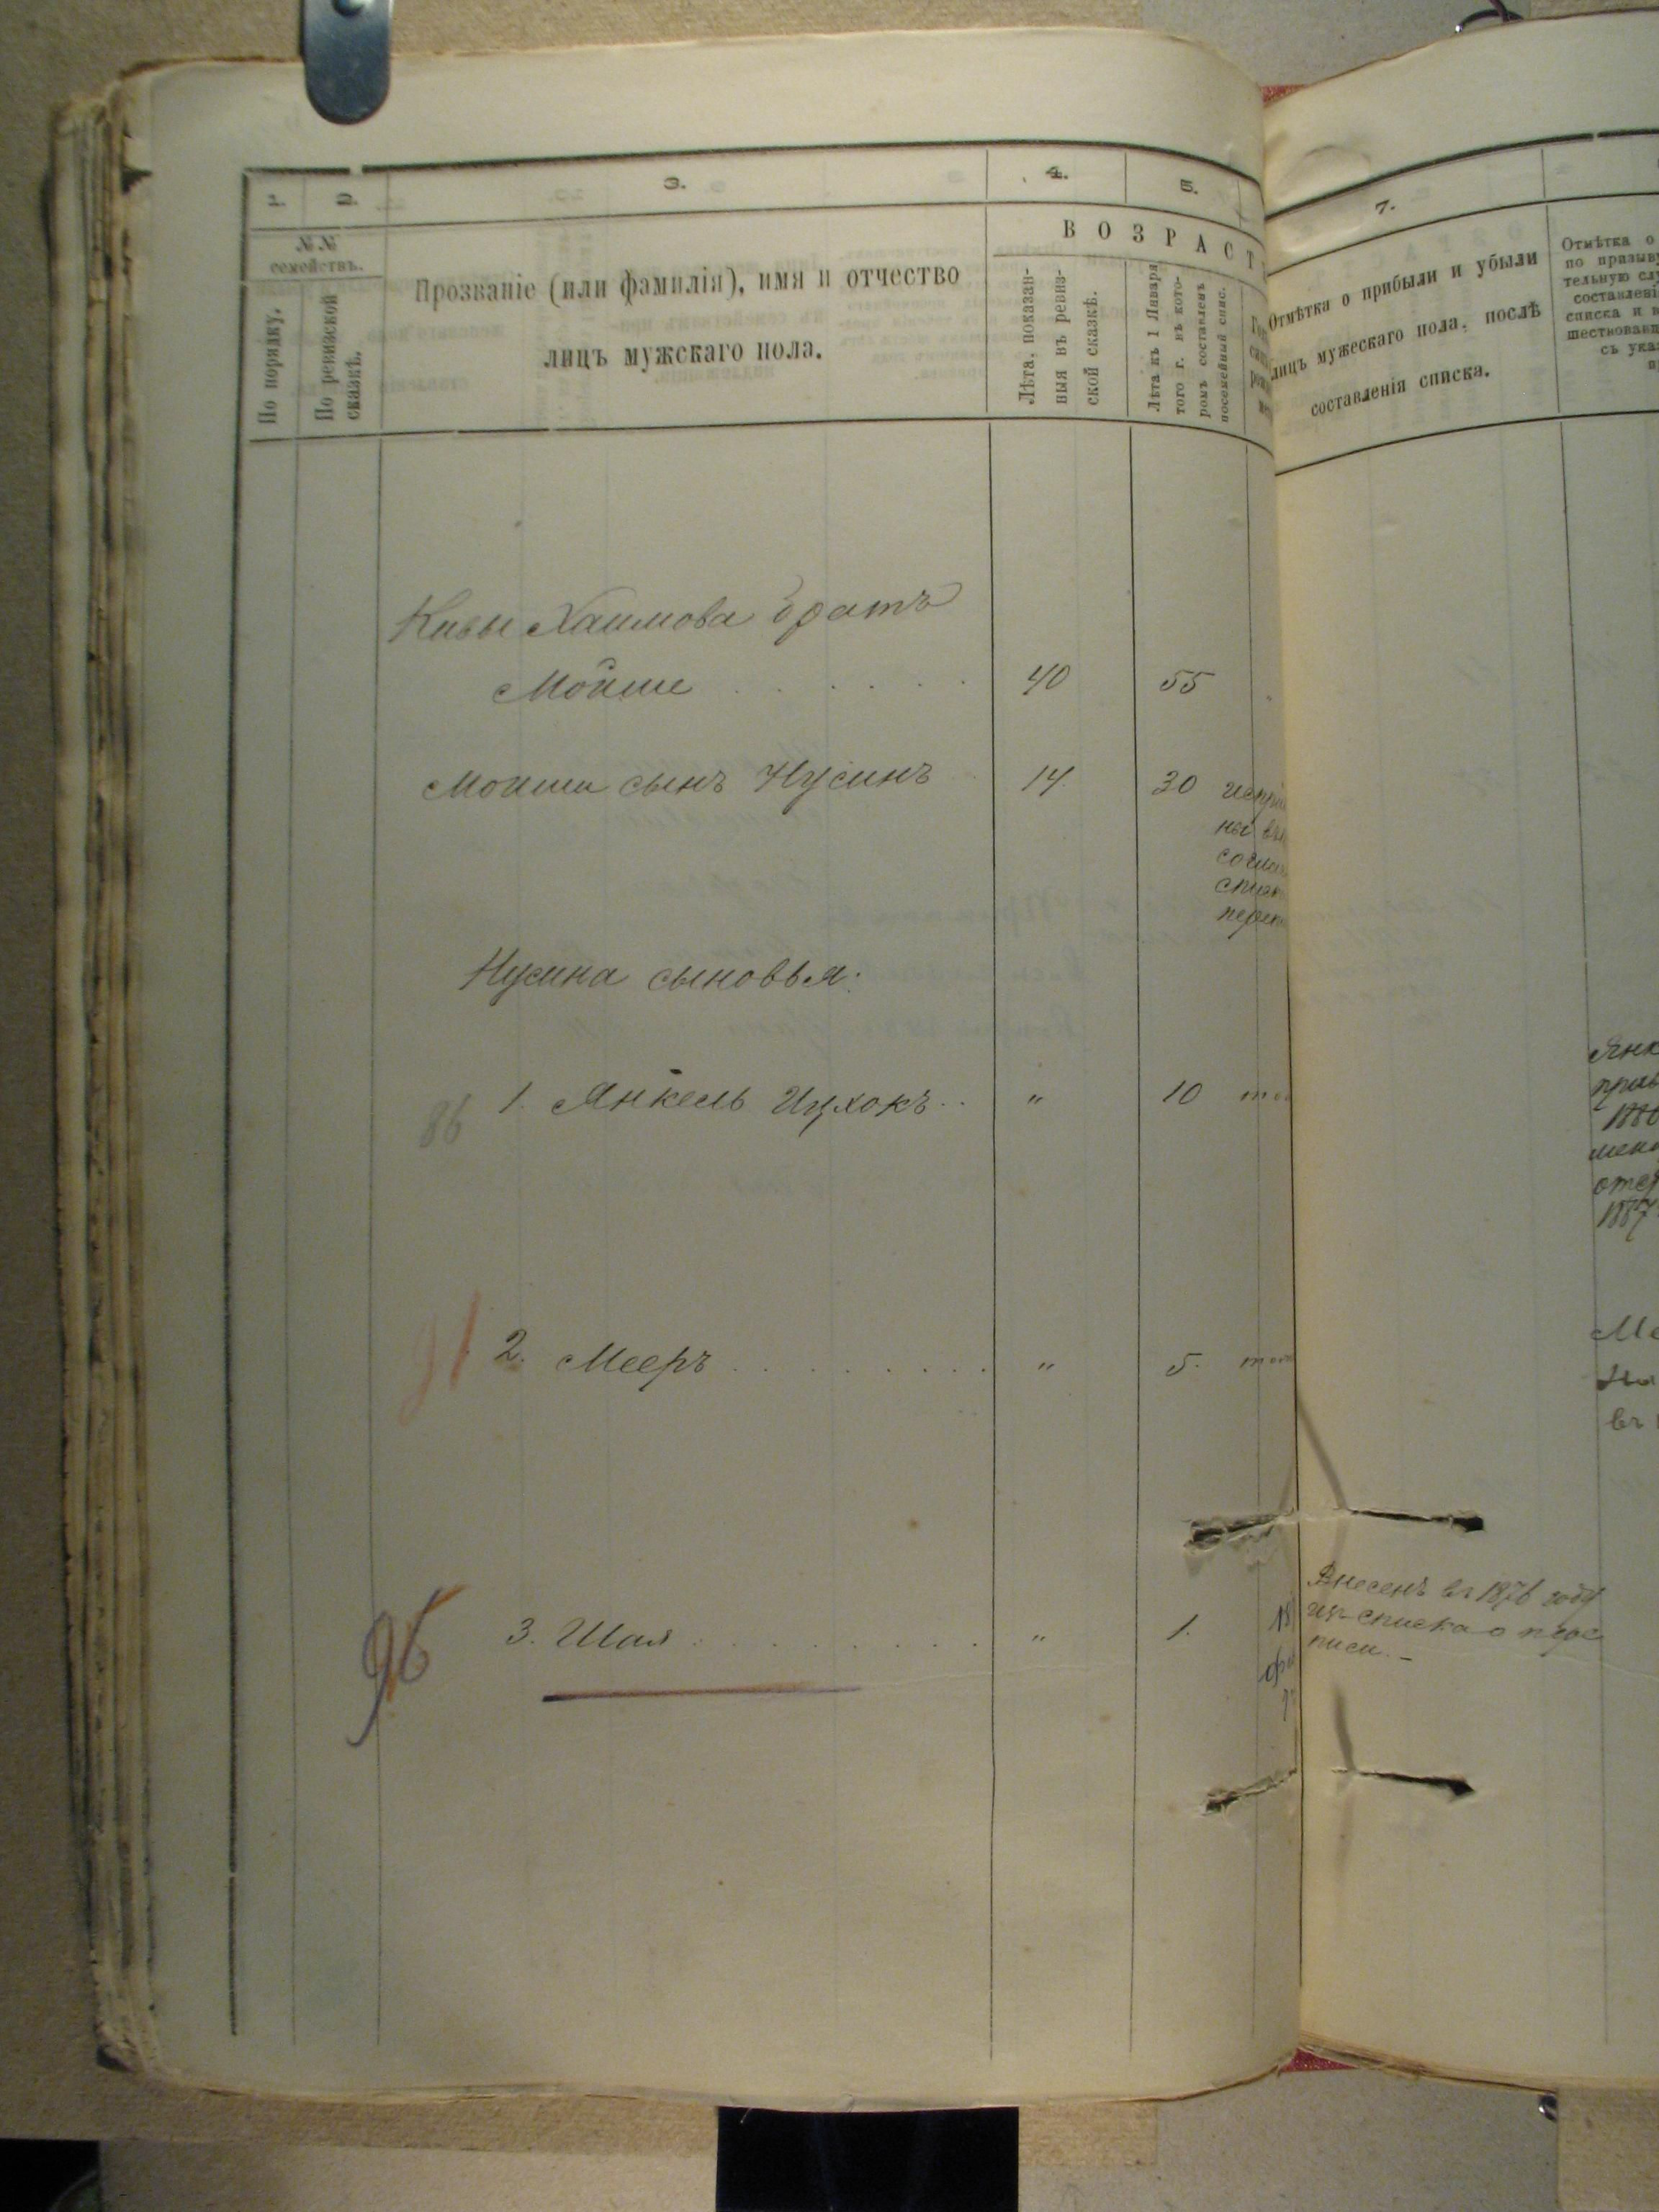 1. 2. 3. 4. 5.
№№ семействъ.
По порядку.
По ревизской сказкѣ.
Прозваніе (или фамилія), имя и отчество
лицъ мужскаго пола.
ВОЗРАСТ
Лѣта, показан-
ныя въ ревиз-
ской сказкѣ.
Лѣта къ 1 Января
того г. въ кото-
ромъ составленъ
посемейный спис.
Кивы Хаимова братъ
Мойше 40 55
Мошки сынъ Нусинъ 14 30
Нусина сыновья:
86 1. Янкель Ицхокъ " 10
91 2. Мееръ " 5.
96 3. Шая " 1.
7.
Отмѣтка о прибыли и убыли
лицъ мужескаго пола, послѣ
составленія списка.
Отмѣтка о
по призыву
тельную слу
составлені
списка и
шествовавш
съ ука
Внесенъ въ 1876 году
изъ списка о пере
писи. –
Янк
1887
Ме
въ